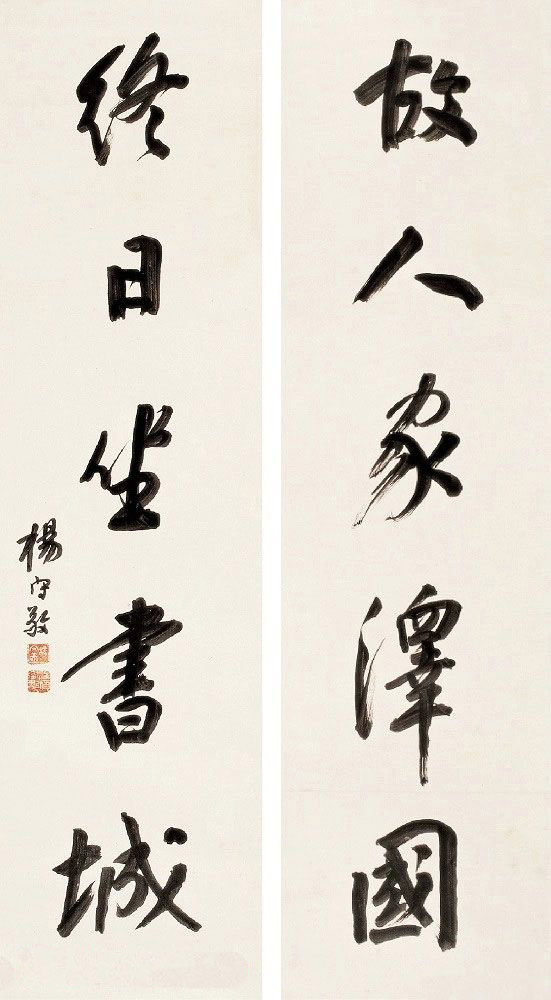 故人家澤國
終日坐書城
楊守敬